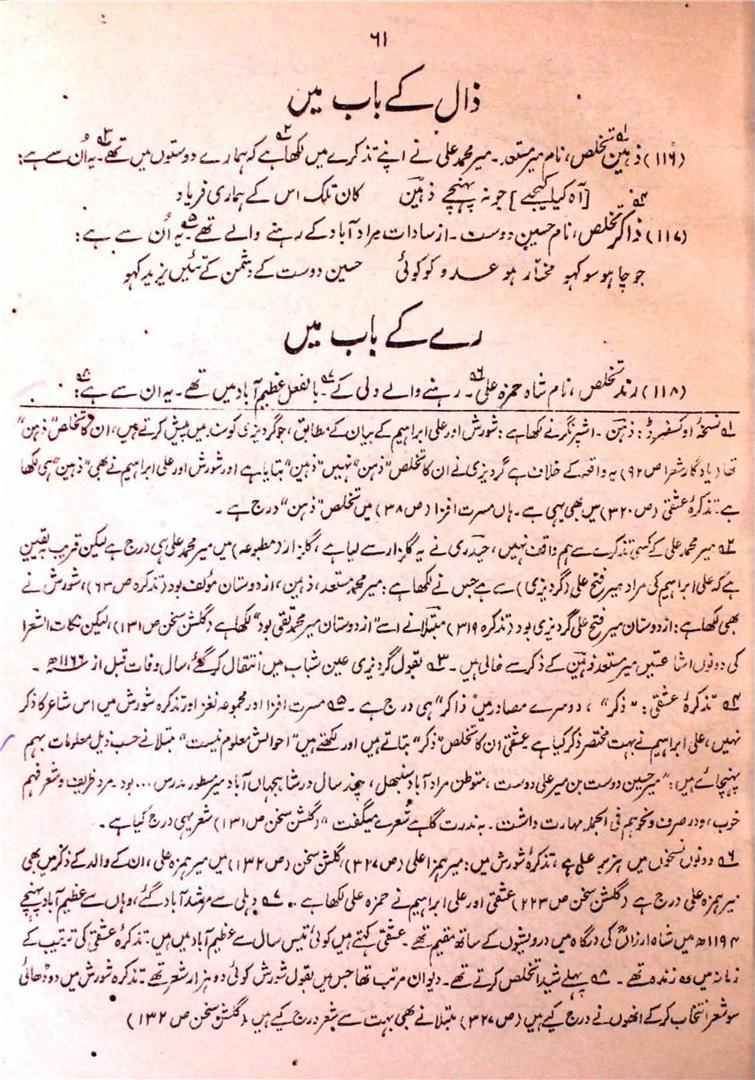 ۶۱
ذال کے باب میں
(۱۱۶) ذہین تخلص، نام میر مستعد۔ میر محمد علی نے اپنے تذکرے میں لکھا ہے کہ ہمارے دوستوں میں تھے۔ یہ اُن سے ہے:
[آہ کیا کیجیے] جو نہ پہنچے ذہین کان تلک اس کے ہماری فریاد
(۱۱۷) ذاکر تخلص، نام حسین دوست۔ از سادات مراد آباد کے رہنے والے تھے۔ یہ اُن سے ہے:
جو چاہو سو کہو مختار ہو عدو کو کوئی حسین دوست کے دشمن کے تئیں یزید کہو
رے کے باب میں
(۱۱۸) رند تخلص، نام شاہ حمزہ علی۔ رہنے والے دلی کے۔ بالفعل عظیم آباد میں تھے۔ یہ ان سے ہے:
۱ نسخۂ اوکسفیرڈ: ذہن۔ اشپرنگر نے لکھا ہے: شورش اور علی ابراہیم کے بیان کے مطابق، جو گردیزی کو سند میں پیش کرتے ہیں، ان کا تخلص "ذہن"
تھا (یادگار شعرا ص ۹۲) یہ واقعہ کے خلاف ہے گردیزی نے ان کا تخلص "ذہن" نہیں "ذہین" بتایا ہے اور شورش اور علی ابراہیم نے بھی "ذہین" ہی لکھا
ہے۔ تذکرۂ عشقی (ص ۳۲۰) میں بھی یہی ہے۔ ہاں مسرت افزا (ص ۳۸) میں تخلص "ذہن" درج ہے۔
۲ میر محمد علی کے کسی تذکرے سے ہم واقف نہیں، حیدری نے یہ گلزار سے لیا ہے، گلزار (مطبوعہ) میں میر محمد علی ہی درج ہے لیکن قریب بہ یقین
ہے کہ علی ابراہیم کی مراد میر فتح علی (گردیزی) سے ہے جس نے لکھا ہے: میر محمد مستعد، ذہین، از دوستان مؤلف بود (تذکرہ ص ۶۳)، شورش نے
بھی لکھا ہے: از دوستان میر فتح علی گردیزی بود (تذکرہ ۳۱۹) مبتلا نے اسے "از دوستان میر محمد تقی بود" لکھا ہے (گلشن سخن ص ۱۳۱)، لیکن نکات الشعرا
کی دونوں اشاعتیں میر مستعد ذہین کے ذکر سے خالی ہیں۔ ۳ بقول گردیزی عین شباب میں انتقال کر گئے، سال وفات قبل از ۱۱۶۶ھ۔
۴ تذکرۂ عشقی: "ذکر"، دوسرے مصادر میں "ذاکر" ہی درج ہے۔ ۵ مسرت افزا اور مجموعہ نغز اور تذکرہ شورش میں اس شاعر کا ذکر
نہیں، علی ابراہیم نے بہت مختصر ذکر کیا ہے عشقی ان کا تخلص "ذکر" بتاتے ہیں اور لکھتے ہیں "احوالش معلوم نیست" مبتلا نے حسب ذیل معلومات بہم
پہنچائے ہیں: "میر حسین دوست بن میر علی دوست، متوطن مراد آباد سنبھل، چند سال در شاہجہاں آباد میر سطور مدرس ... بود۔ مرد ظریف و شعر فہم
خوب، و در صرف و نحو ہم فی الجملہ مہارت داشت۔ بہ ندرت گاہے شعرے میگفت" (گلشن سخن ص ۱۳۱) شعر یہی درج کیا ہے۔
۶ دونوں نسخوں میں ہزبر علی ہے، تذکرہ شورش میں: میر ہمزا علی (ص ۳۲۷) گلشن سخن (ص ۱۳۲) میں میر ہمزہ علی، ان کے والد کے ذکر میں بھی
میر ہمزہ علی درج ہے (گلشن سخن ص ۲۲۳) عشقی اور علی ابراہیم نے حمزہ علی لکھا ہے۔ ۷ دہلی سے مرشد آباد گئے، وہاں سے عظیم آباد پہنچے
۱۱۹۴ھ میں شاہ ارزاں کی درگاہ میں درویشوں کے ساتھ مقیم تھے۔ عشقی کہتے ہیں کوئی تیس سال سے عظیم آباد میں ہیں۔ تذکرہ عشقی کی ترتیب کے
زمانہ میں وہ زندہ تھے۔ ۸ پہلے شیدا تخلص کرتے تھے۔ دیوان مرتب تھا جس میں بقول شورش کوئی دو ہزار شعر تھے۔ تذکرہ شورش میں دو ڈھائی
سو شعر انتخاب کر کے انھوں نے درج کیے ہیں (ص ۳۲۷) مبتلا نے بھی بہت سے شعر درج کیے ہیں (گلشن سخن ص ۱۳۲)